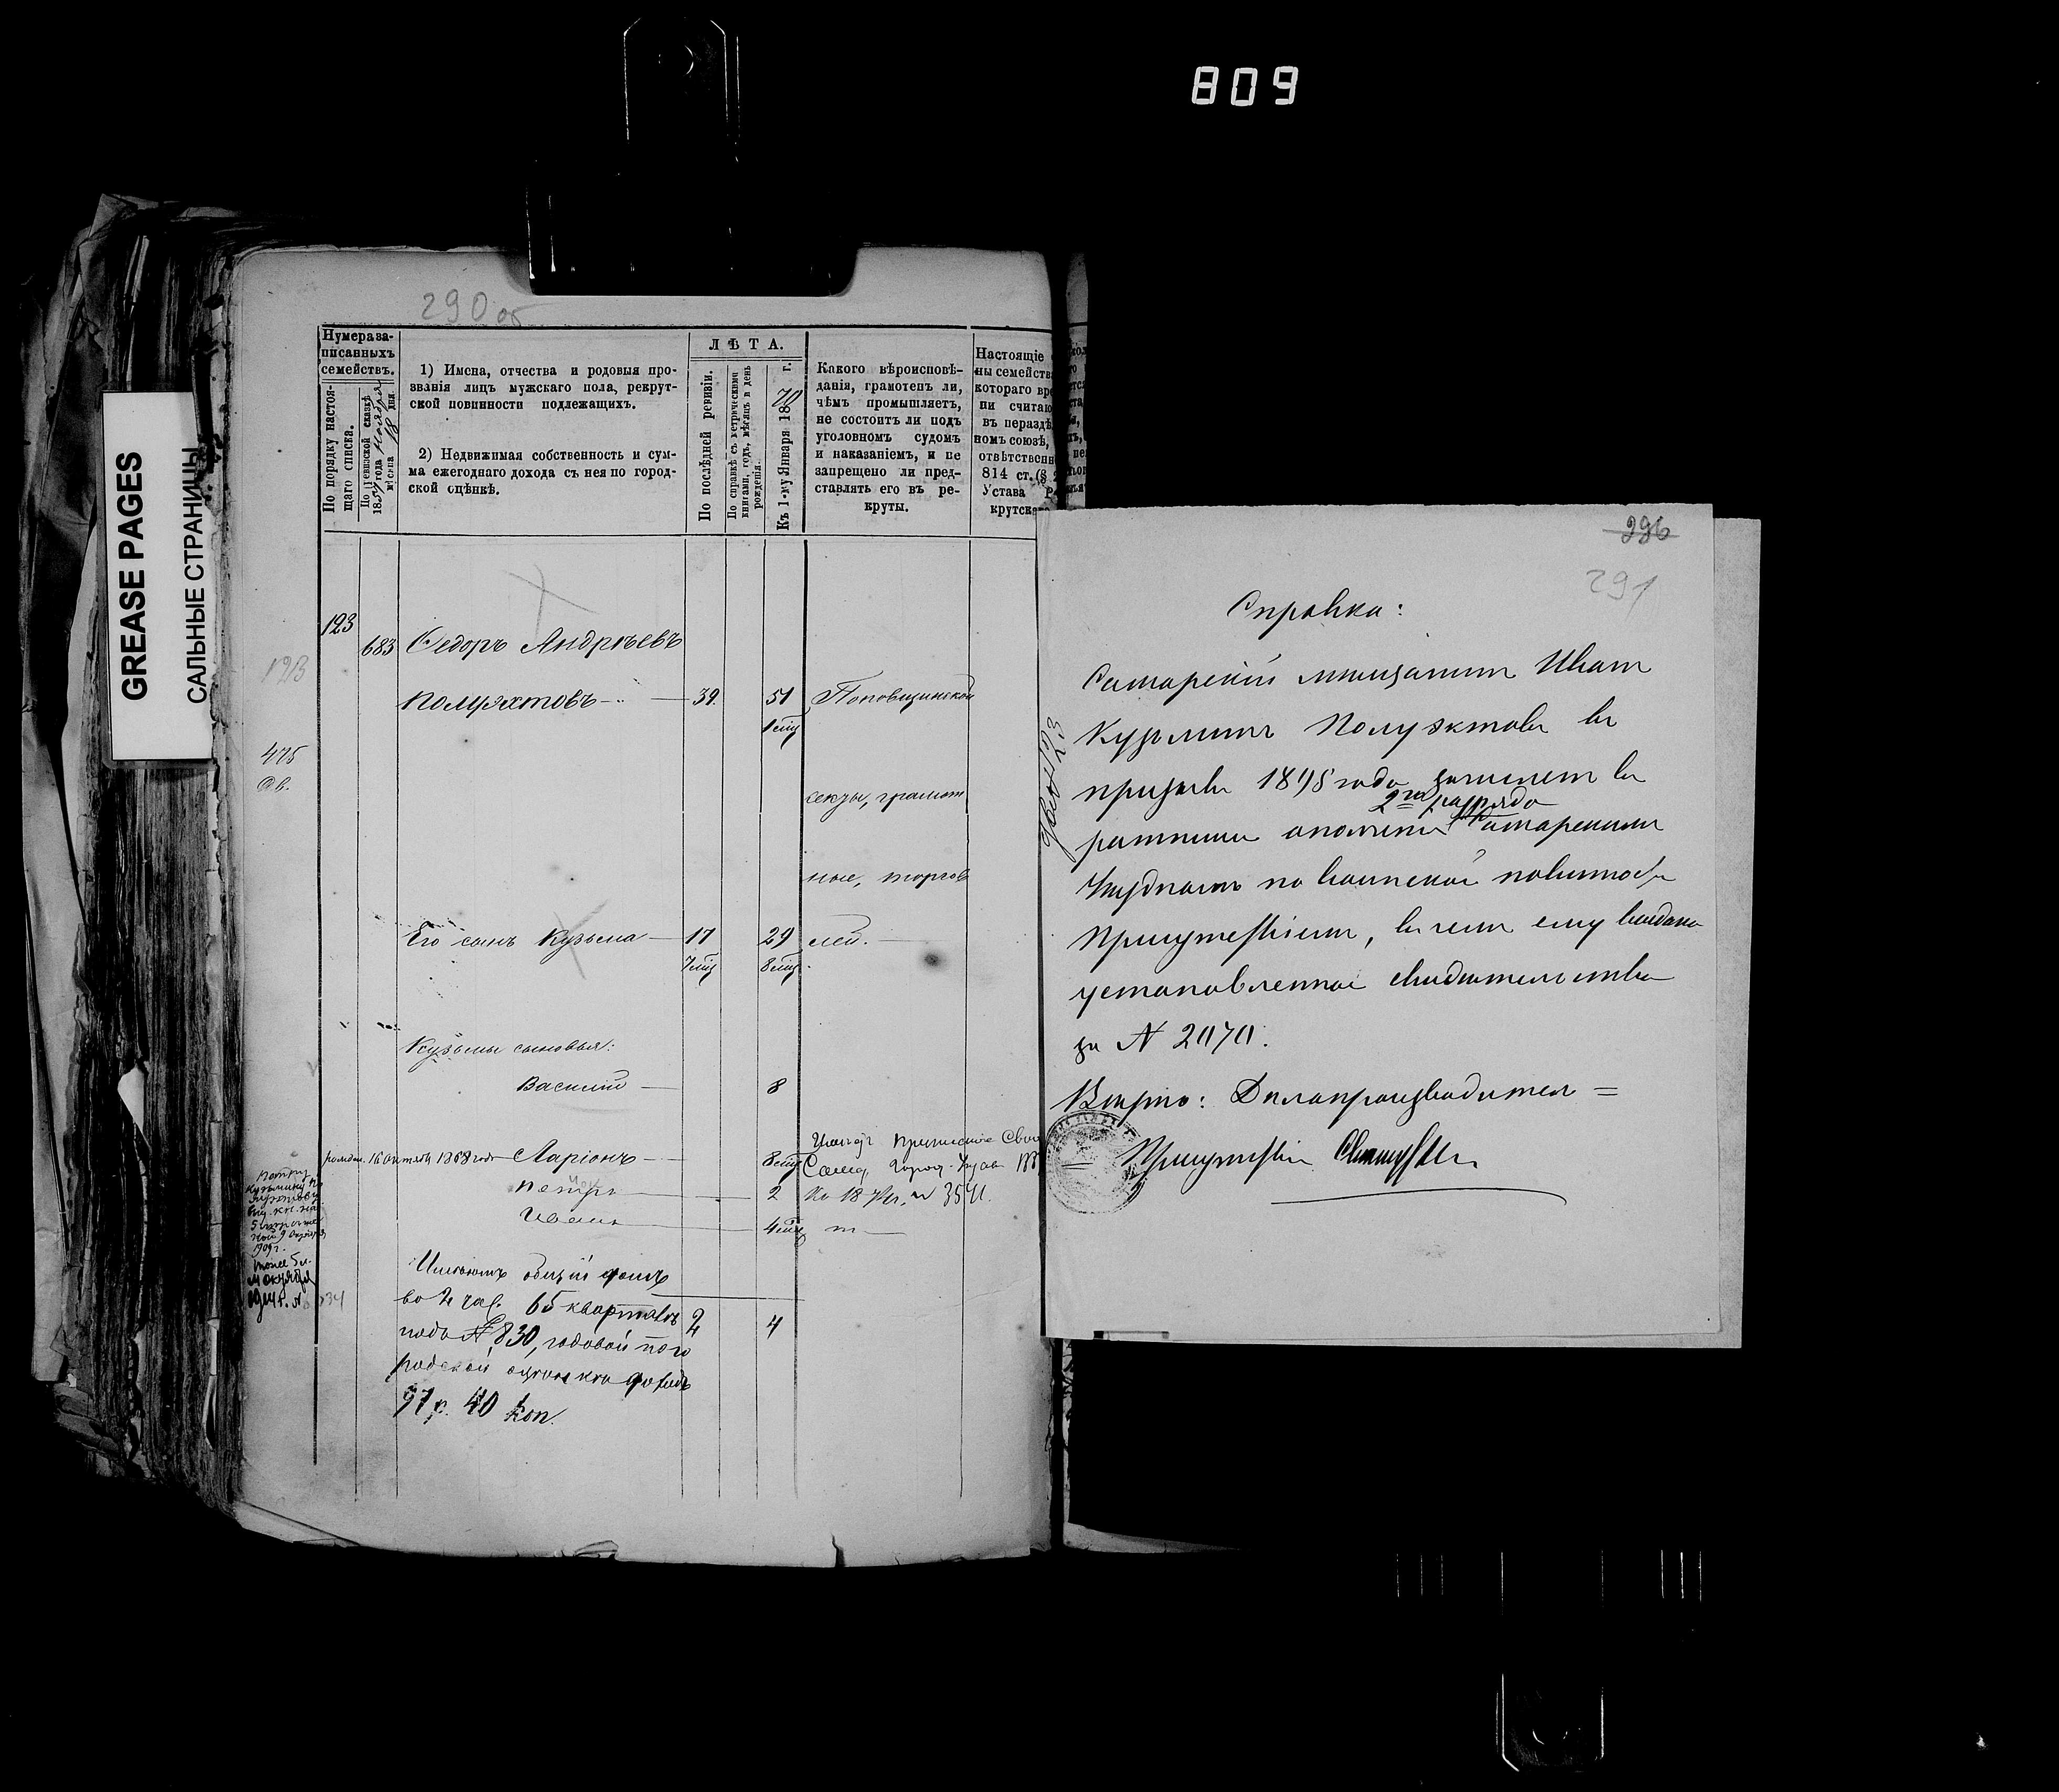 809
GREASE PAGES
САЛЬНЫЕ СТРАНИЦЫ
290 об
Нумера за-
писанныхъ
семействъ.
По порядку настоя-
щаго списка.
По ревизской сказкѣ
185 года ноября
мѣсяца 18 дня.
1) Имена, отчества и родовыя про-
званія лицъ мужскаго пола, рекрут-
ской повинности подлежащихъ.
2) Недвижимая собственность и сум-
ма ежегоднаго дохода съ нея по город-
ской оцѣнкѣ.
ЛѢТА.
По послѣдней ревизіи.
По справкѣ съ метрическими
книгами, годъ, мѣсяцъ и день
рожденія.
Къ 1-му Января 1870 г.
Какого вѣроисповѣ-
данія, грамотенъ ли,
чѣмъ промышляетъ,
не состоитъ ли подъ
уголовномъ судомъ
и наказаніемъ, и не
запрещено ли пред-
ставлять его въ ре-
круты.
Настоящіе
ны семейств
котораго вре
ни считаю
въ наразд
номъ союзѣ,
отвѣтственн
814 ст. (§ 2
Устава Ре
крутска
123
683 Федоръ Андрѣевъ
193
Полуяхтовъ 39 51 Поповщинской
1 мц
475
секты, грамот
ные, торгов
Его сынъ Кузьма 17 29 лей.
7 мц 8 мц
Кузьмы сыновья:
Василій 8
рожден. 16 октября 1868 года Ларіонъ 8 мц
Петръ 2
По 18 № 3541.
Иванъ 4 мц
Имѣютъ общій домъ
во 2 час. 65 квартале
подъ № 830, годовой по го
родской оценке доходъ
97 р. 40 коп.
2 4
296
291
Справка:
Самарскій мѣщанинъ Иванъ
Кузьминъ Полуэктовъ въ
призывъ 1895 года зачисленъ въ
ратники ополченія 2го разряда Самарскимъ
Уѣзднымъ по воинской повинности
Присутствіемъ, въ чемъ ему выдано
установленное свидѣтельство
за № 2070.
Вѣрно: Дѣлопроизводитель =
Присутствія